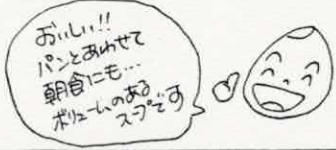 おいしい!!
パンとあわせて
朝食にも…
ボリュームのある
スープです